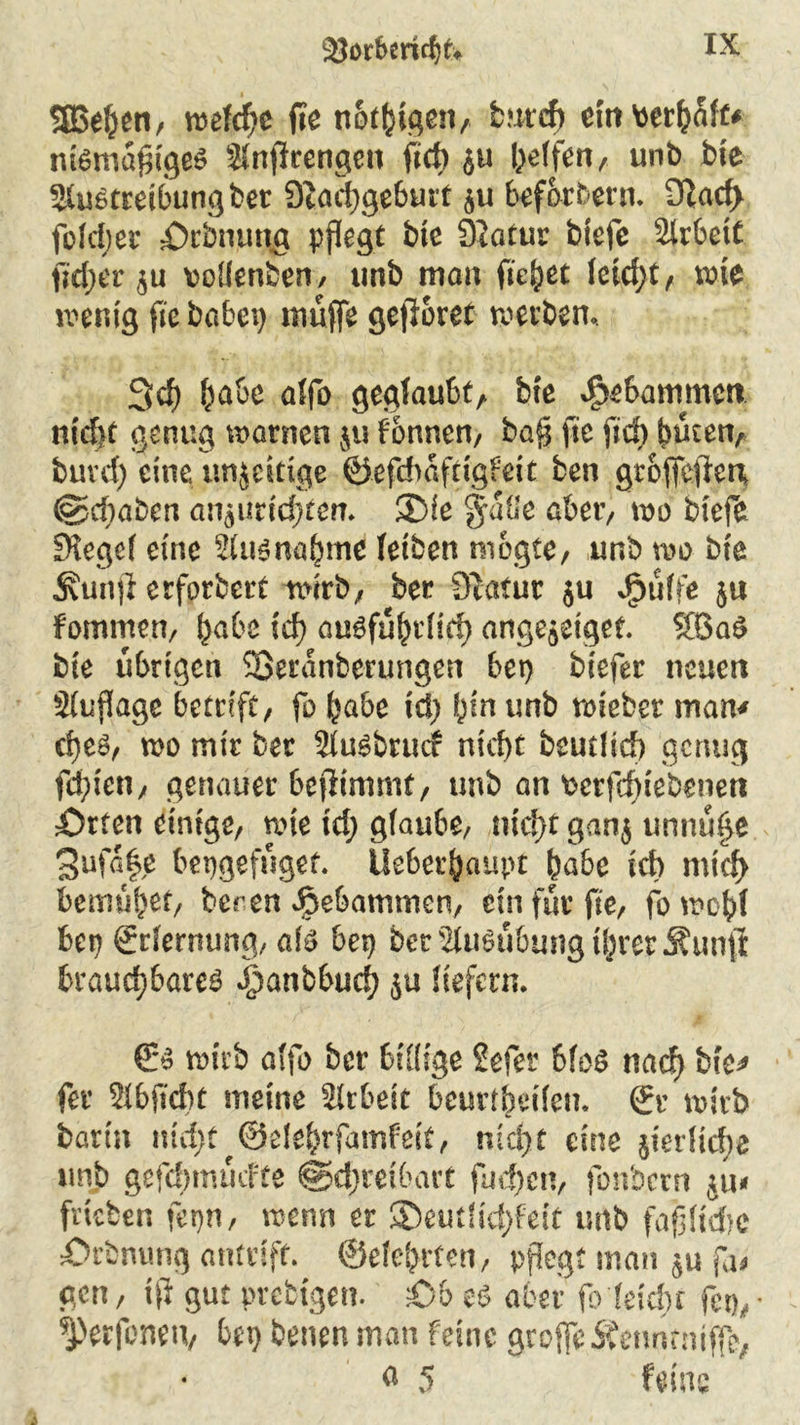 Vorbericht. IX
Wehen, welche sie nöthigen, durch ein verhält-
nismäßiges Anstrengen sich zu helfen, und die
Austreibung der Nachgeburt zu befördern. Nach
solcher Ordnung pflegt die Natur diese Arbeit
sicher zu vollenden, und man siehet leicht, wie
wenig sie dabey müsse gestöret werden.
Ich habe also geglaubt, die Hebammen
nicht genug warnen zu können, daß sie sich hüten,
durch eine unzeitige Geschäftigkeit den grössesten
Schaden anzurichten. Die Fälle aber, wo diese
Regel eine Ausnahme leiden mögte, und wo die
Kunst erfordert wird, der Natur zu Hülfe zu
kommen, habe ich ausführlich angezeiget. Was
die übrigen Veränderungen bey dieser neuen
Auflage betrift, so habe ich hin und wieder man-
ches, wo mir der Ausdruck nicht deutlich genug
schien, genauer bestimmt, und an verschiedenen
Orten einige, wie ich glaube, nicht ganz unnütze
Zusätze beygefüget. Ueberhaupt habe ich mich
bemühet, denen Hebammen, ein für sie, so wohl
bey Erlernung, als bey der Ausübung ihrer Kunst
brauchbares Handbuch zu liefern.
Es wird also der billige Leser blos nach die-
ser Absicht meine Arbeit beurtheilen. Er wird
darin nicht Gelehrsamkeit, nicht eine zierliche
und geschmückte Schreibart suchen, sondern zu-
frieden seyn, wenn er Deutlichkeit und faßliche
Ordnung antrift. Gelehrten, pflegt man zu sa-
gen, ist gut predigen. Ob es aber so leicht sey,
Personen, bey denen man keine grosse Kenntnisse,
a 5 keine